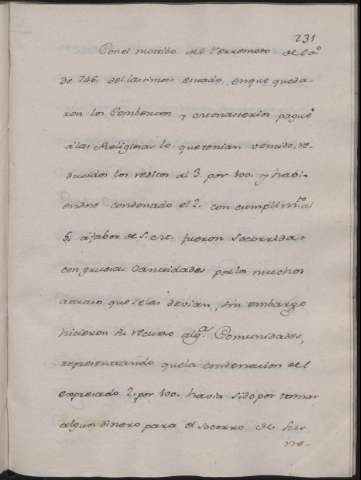 231
Con el motivo del Terremoto del aº
de 746. del lastimoso estado, en que queda-
ron los Combentos y Monasterios pagué
a las Religiosas lo que tenian vencido, re-
ducidos los reditos al 3. por 100. y habi-
endose condonado el 2. con cumplimto al
5. a favor de S. M. fueron socorridas
con gruesas cantidades por los muchos
atrasos que seles devian, sin embargo
hicieron su recurso algs Comunidades,
representando que la condonacion del
expresado 2. por 100. havia sido por tomar
algun dinero para el socorro de sus
ne-